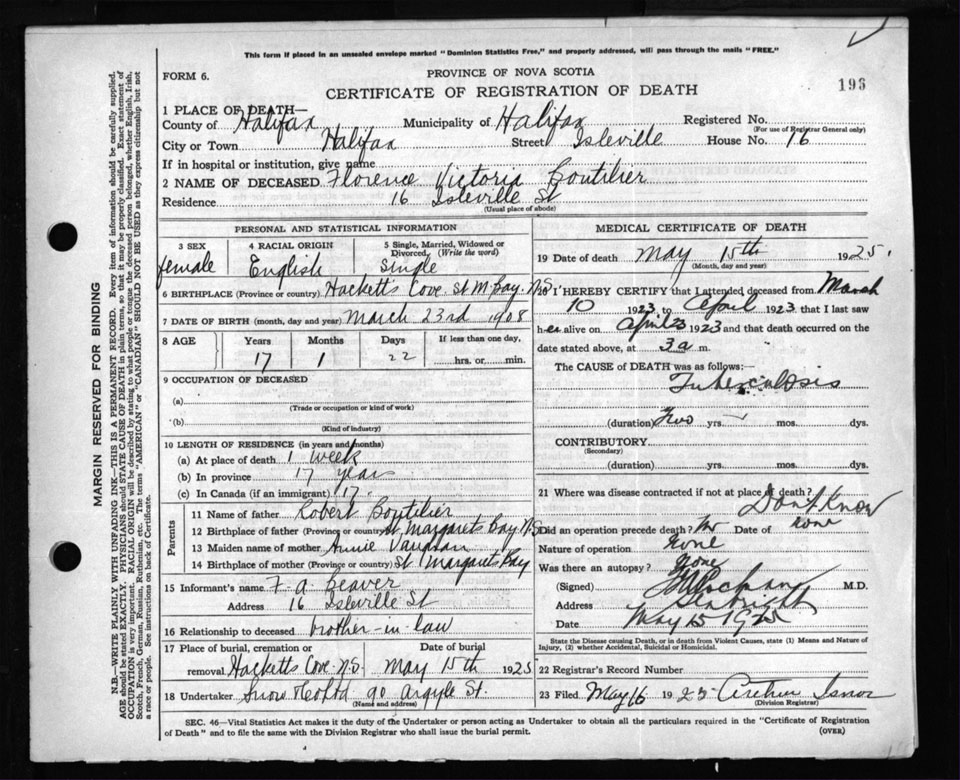 This form if placed in an unsealed envelope marked "Dominion Statistics Free," and properly addressed, will pass through the mails "FREE."
FORM 6.
PROVINCE OF NOVA SCOTIA
CERTIFICATE OF REGISTRATION OF DEATH
193
1 PLACE OF DEATH—
County of Halifax Municipality of Halifax Registered No.
(For use of Registrar General only)
City or Town Halifax Street Isleville House No. 16
If in hospital or institution, give name
2 NAME OF DECEASED Florence Victoria Boutilier
Residence 16 Isleville St
(Usual place of abode)
PERSONAL AND STATISTICAL INFORMATION
3 SEX
female
4 RACIAL ORIGIN
English
5 Single, Married, Widowed or Divorced, (Write the word)
Single
6 BIRTHPLACE (Province or country) Hacketts Cove. St M. Bay. N.S
7 DATE OF BIRTH (month, day and year) March 23rd 1908
8 AGE
Years Months Days If less than one day,
17 1 22 hrs. or min.
9 OCCUPATION OF DECEASED
(a)
(Trade or occupation or kind of work)
(b)
(Kind of industry)
10 LENGTH OF RESIDENCE (in years and months)
(a) At place of death 1 week
(b) In province 17 years
(c) In Canada (if an immigrant) 17.
Parents
11 Name of father Robert Boutilier
12 Birthplace of father (Province or country) St Margarets Bay N.S
13 Maiden name of mother Annie
14 Birthplace of mother (Province or country) St Margarets Bay
15 Informant's name F. A. Beaver
Address 16 Isleville St
16 Relationship to deceased brother-in-law
17 Place of burial, cremation or removal Date of burial
Hacketts Cove. N.S. May 15th 1925
18 Undertaker Snow & Co Ltd 90 Argyle St.
(Name and address)
MEDICAL CERTIFICATE OF DEATH
19 Date of death May 15th 1925.
(Month, day and year)
20 I HEREBY CERTIFY that I attended deceased from March
10 1923 to April 1923 that I last saw
her alive on April 23 1923 and that death occurred on
date stated above, at 3 a m.
The CAUSE of DEATH was as follows:—
Tuberculosis
(duration) Two yrs. mos. dys.
CONTRIBUTORY.
(Secondary)
(duration) yrs. mos. dys.
21 Where was disease contracted if not at place of death?
Don't Know
Did an operation precede death? No Date of none
Nature of operation None
Was there an autopsy? None
(Signed) M.D.
Address Seabright
Date May 15 1925
State the Disease causing Death, or in death from Violent Causes, state (1) Means and Nature of Injury, (2) whether Accidental, Suicidal or Homicidal.
22 Registrar's Record Number
23 Filed May 16 1925 Arthur Isnor
(Division Registrar)
SEC. 46—Vital Statistics Act makes it the duty of the Undertaker or person acting as Undertaker to obtain all the particulars required in the "Certificate of Registration
of Death" and to file the same with the Division Registrar who shall issue the burial permit.
(OVER)
4
MARGIN RESERVED FOR BINDING
N.B.—WRITE PLAINLY WITH UNFADING INK—THIS IS A PERMANENT RECORD. Every item of information should be carefully supplied.
AGE should be stated EXACTLY. PHYSICIANS should STATE CAUSE OF DEATH in plain terms, so that it may be properly classified. Exact statement of
OCCUPATION is very important. RACIAL ORIGIN will be described by stating to what people or tongue the deceased person belonged, whether English, Irish,
Scotch, French, German, Russian, Ruthenian, etc. The terms "AMERICAN" or "CANADIAN" SHOULD NOT BE USED as they express citizenship but not
a race or people. See instructions on back of Certificate.